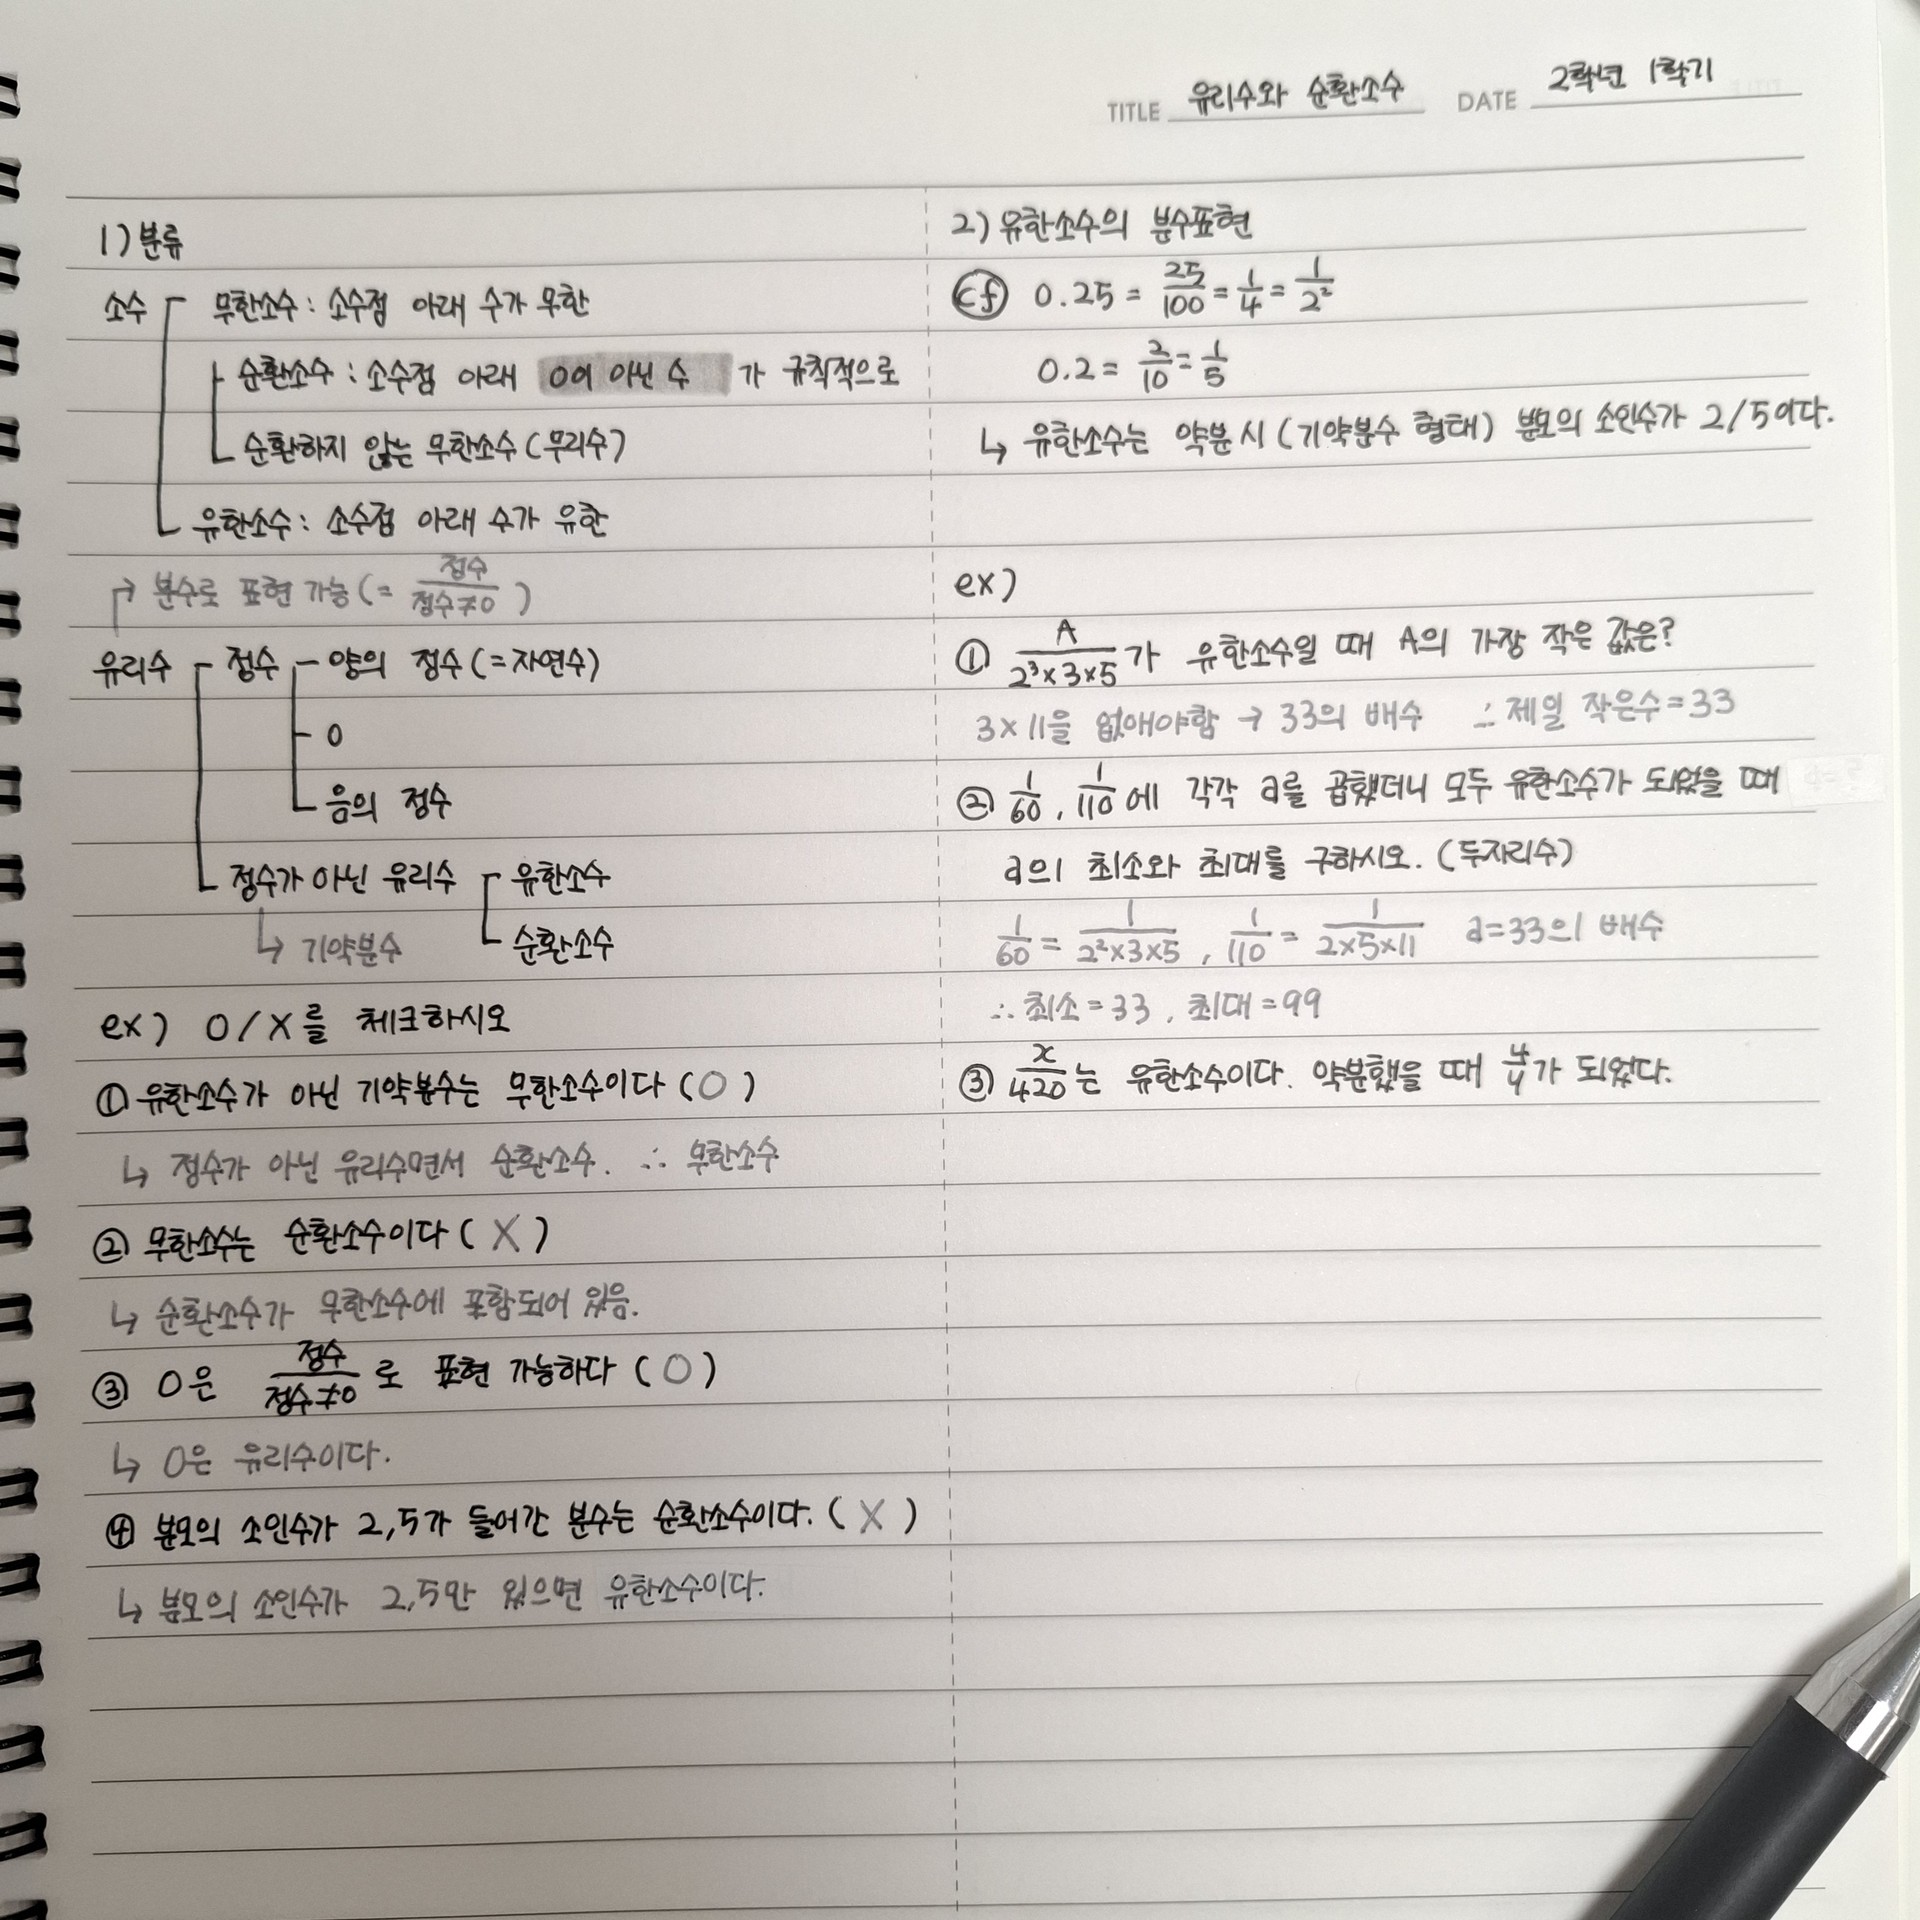 TITLE 유리수와 순환소수 DATE 2학년 1학기
1) 분류
소수 무한소수 : 소수점 아래 수가 무한
순환소수 : 소수점 아래 0이 아닌 수 가 규칙적으로
순환하지 않는 무한소수 (무리수)
유한소수 : 소수점 아래 수가 유한
→ 분수로 표현 가능 (= 정수/정수≠0 )
유리수 정수 양의 정수 (=자연수)
0
음의 정수
정수가 아닌 유리수 유한소수
↳ 기약분수 순환소수
ex) O/X를 체크하시오
① 유한소수가 아닌 기약분수는 무한소수이다 ( O )
↳ 정수가 아닌 유리수면서 순환소수. ∴ 무한소수
② 무한소수는 순환소수이다 ( X )
↳ 순환소수가 무한소수에 포함되어 있음.
③ 0은 정수/정수≠0 로 표현 가능하다 ( O )
↳ 0은 유리수이다.
④ 분모의 소인수가 2,5가 들어간 분수는 순환소수이다. ( X )
↳ 분모의 소인수가 2,5만 있으면 유한소수이다.
2) 유한소수의 분수표현
cf 0.25 = 25/100 = 1/4 = 1/2²
0.2 = 2/10 = 1/5
↳ 유한소수는 약분 시 (기약분수 형태) 분모의 소인수가 2/5이다.
ex)
① A/2³×3×5 가 유한소수일 때 A의 가장 작은 값은?
3×11을 없애야함 → 33의 배수 ∴ 제일 작은수 = 33
② 1/60, 1/110에 각각 a를 곱했더니 모두 유한소수가 되었을 때
a의 최소와 최대를 구하시오. (두자리수)
1/60 = 1/2²×3×5 , 1/110 = 1/2×5×11 a=33의 배수
∴ 최소 = 33 , 최대 = 99
③ x/420는 유한소수이다. 약분했을 때 4/y가 되었다.